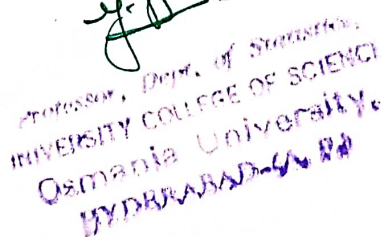 Professor, Dept. of Statistics,
UNIVERSITY COLLEGE OF SCIENCE
Osmania University,
HYDERABAD